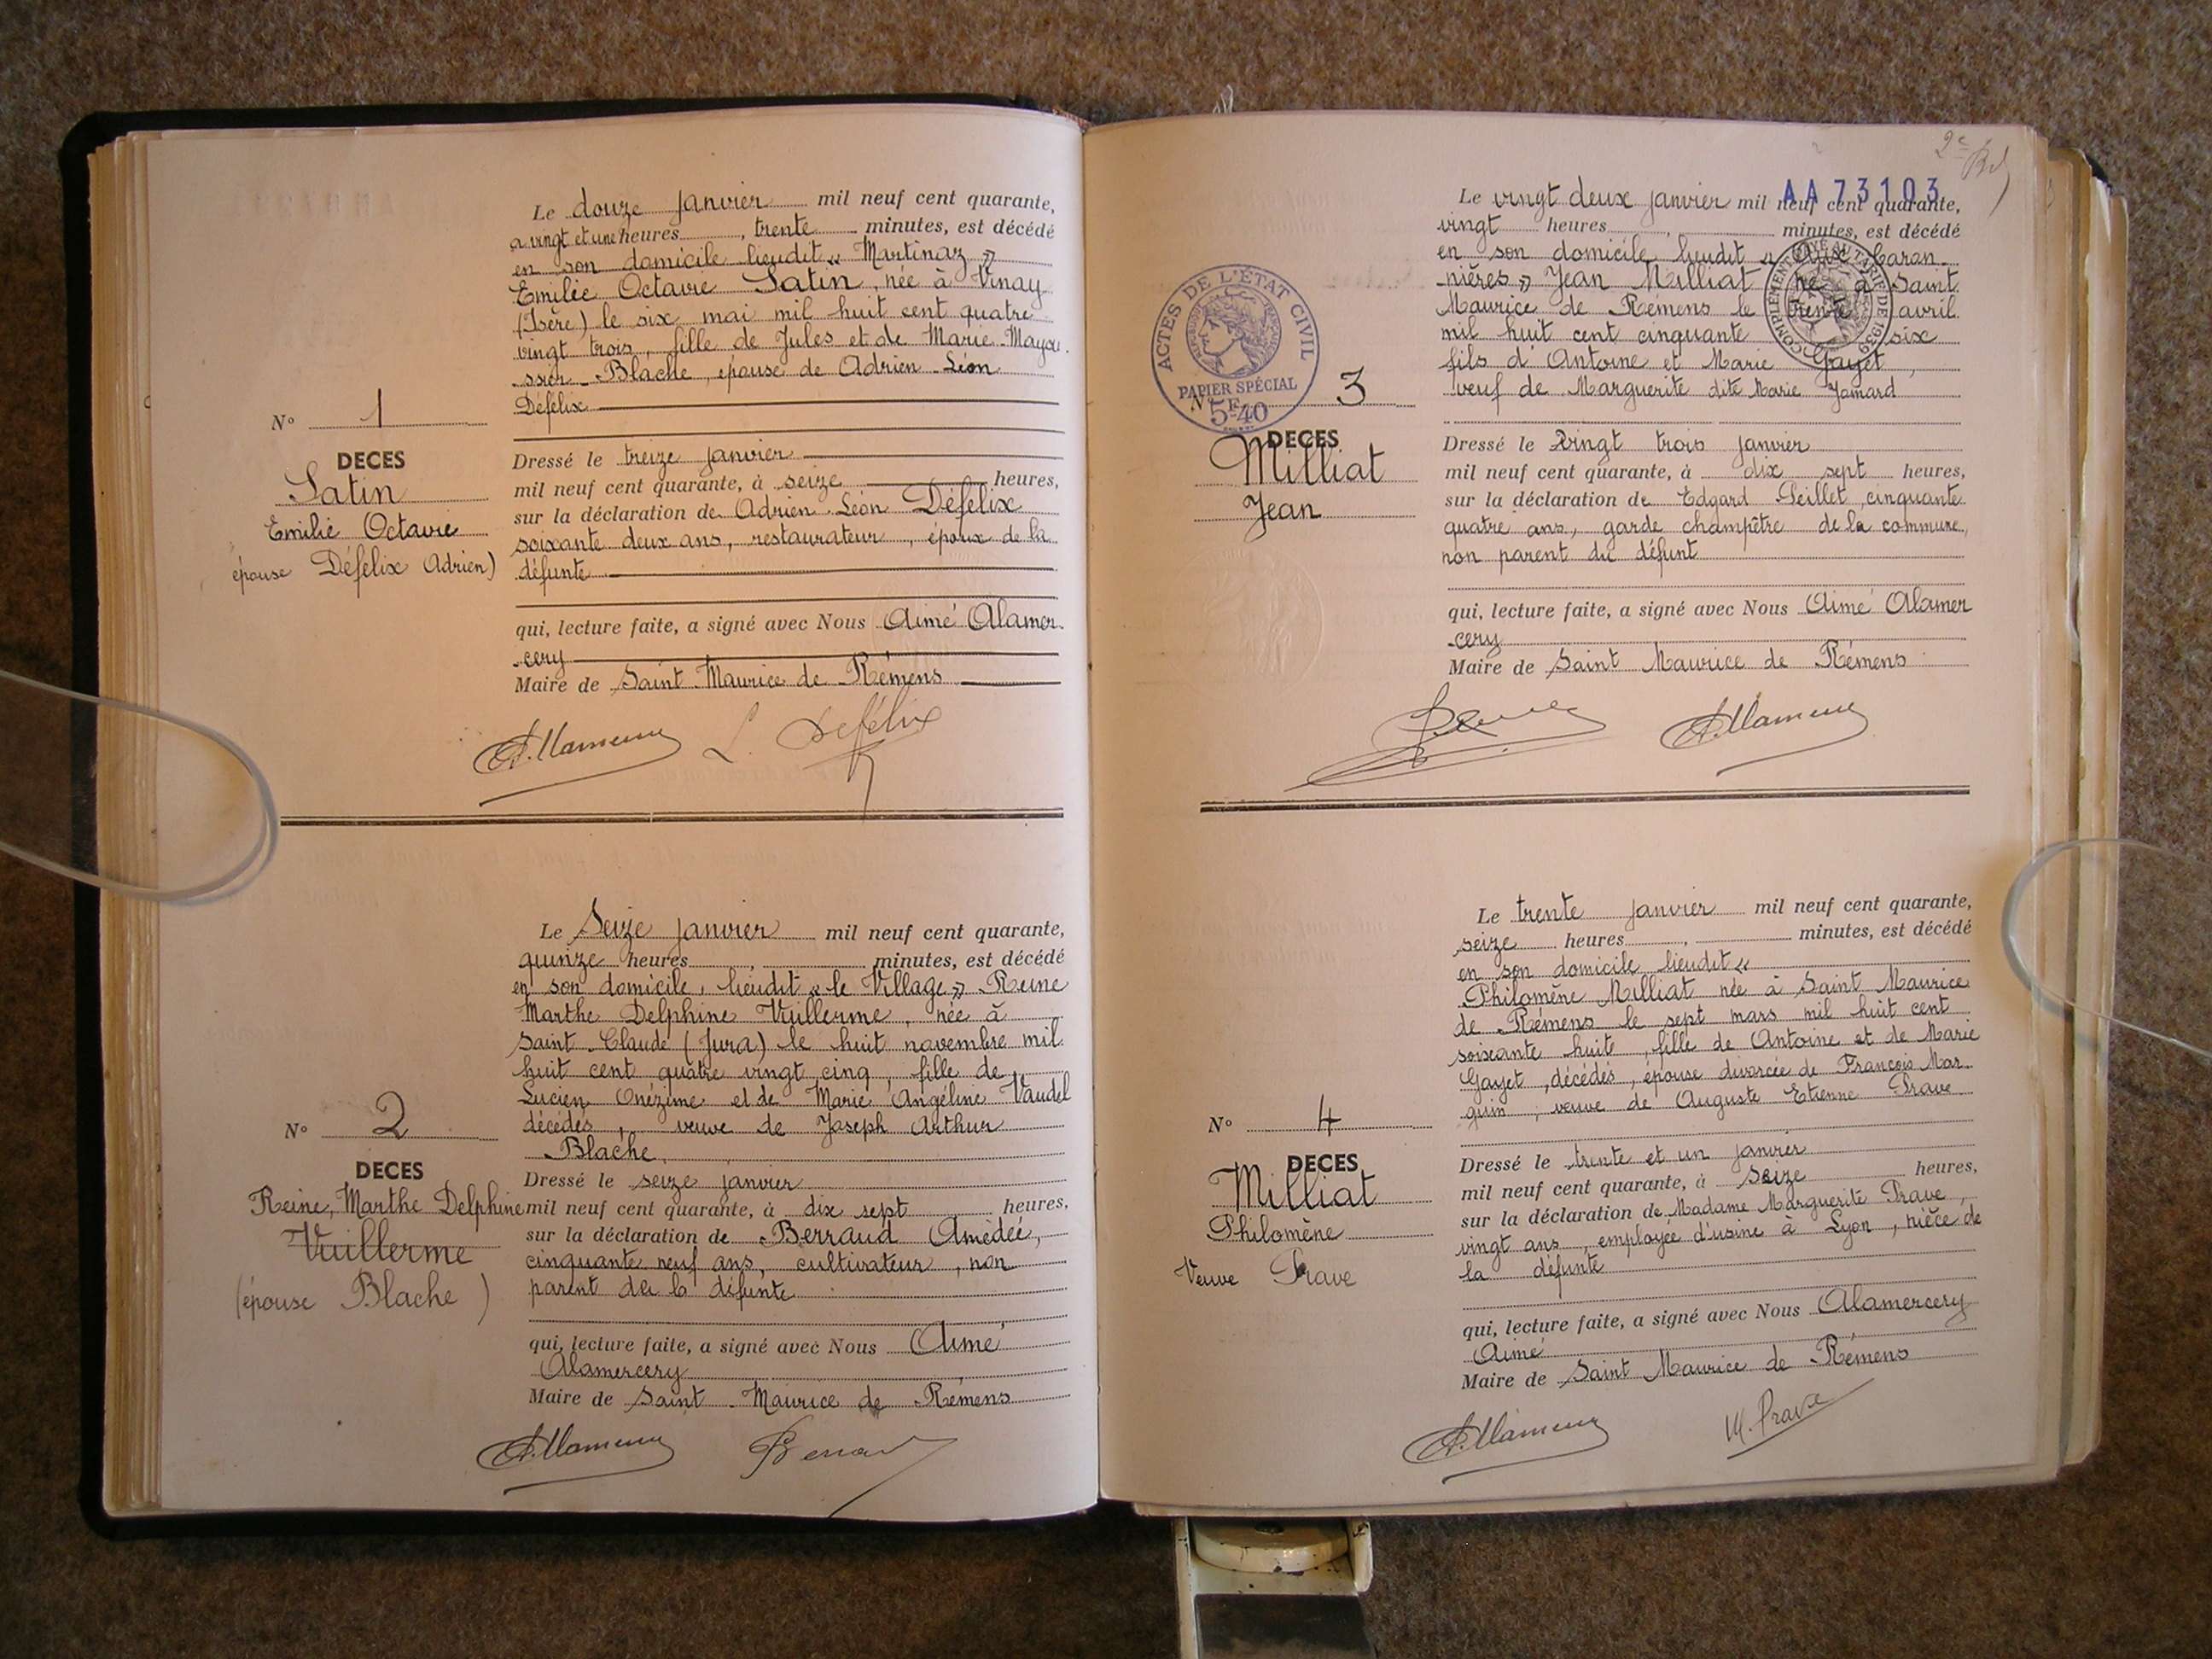 Le douze janvier mil neuf cent quarante,
a vingt et une heures, trente minutes, est décédé
en son domicile lieudit « Martinaz »
Emilie Octavie Satin, née à Vinay
(Isère) le six mai mil huit cent quatre
vingt trois, fille de Jules et de Marie
Blache, épouse de Adrien Léon
Défélix
N° 1
DECES
Satin
Emilie Octavie
épouse Défélix Adrien)
Dressé le treize janvier
mil neuf cent quarante, à seize heures,
sur la déclaration de Adrien Léon Défélix
soixante deux ans, restaurateur, époux de la
défunte
qui, lecture faite, a signé avec Nous Aimé Alamer
-cery
Maire de Saint Maurice de Rémens
L. Defélix
Le Seize janvier mil neuf cent quarante,
quinze heures, minutes, est décédé
en son domicile, lieudit « le Village » Reine
Marthe Delphine Vuillerme, née à
Saint Claude (Jura) le huit novembre mil
huit cent quatre vingt cinq, fille de
Lucien Onézime et de Marie Angéline Vaudel
décédés, veuve de Joseph Arthur
Blache
N° 2
DECES
Reine, Marthe Delphine
Vuillerme
(épouse Blache)
Dressé le seize janvier
mil neuf cent quarante, à dix sept heures,
sur la déclaration de Berraud Amédée,
cinquante neuf ans, cultivateur, non
parent de la défunte
qui, lecture faite, a signé avec Nous Aimé
Alamercery
Maire de Saint Maurice de Rémens
2e
AA 73103
Le vingt deux janvier mil neuf cent quarante,
vingt heures, minutes, est décédé
en son domicile lieudit «
-nières » Jean Milliat né à Saint
Maurice de Rémens le trente avril
mil huit cent cinquante six
fils d'Antoine et Marie Gayet,
veuf de Marguerite dite Marie Jamard
COMPLEMENT PAYÉ AU TARIF DE 1939
ACTES DE L'ÉTAT CIVIL
RÉPUBLIQUE FRANÇAISE
PAPIER SPÉCIAL
5F40
N° 3
DECES
Milliat
Jean
Dressé le vingt trois janvier
mil neuf cent quarante, à dix sept heures,
sur la déclaration de Edgard Seillet, cinquante
quatre ans, garde champêtre de la commune,
non parent du défunt
qui, lecture faite, a signé avec Nous Aimé Alamer
-cery
Maire de Saint Maurice de Rémens
Le trente janvier mil neuf cent quarante,
seize heures, minutes, est décédé
en son domicile lieudit «
Philomène Milliat née à Saint Maurice
de Rémens le sept mars mil huit cent
soixante huit, fille de Antoine et de Marie
Gayet, décédés, épouse divorcée de François Mar
guin, veuve de Auguste Etienne Prave
N° 4
DECES
Milliat
Philomène
Veuve Prave
Dressé le trente et un janvier
mil neuf cent quarante, à seize heures,
sur la déclaration de Madame Marguerite Prave,
vingt ans, employée d'usine à Lyon, nièce de
la défunte
qui, lecture faite, a signé avec Nous Alamercery
Aimé
Maire de Saint Maurice de Rémens
M. Prave